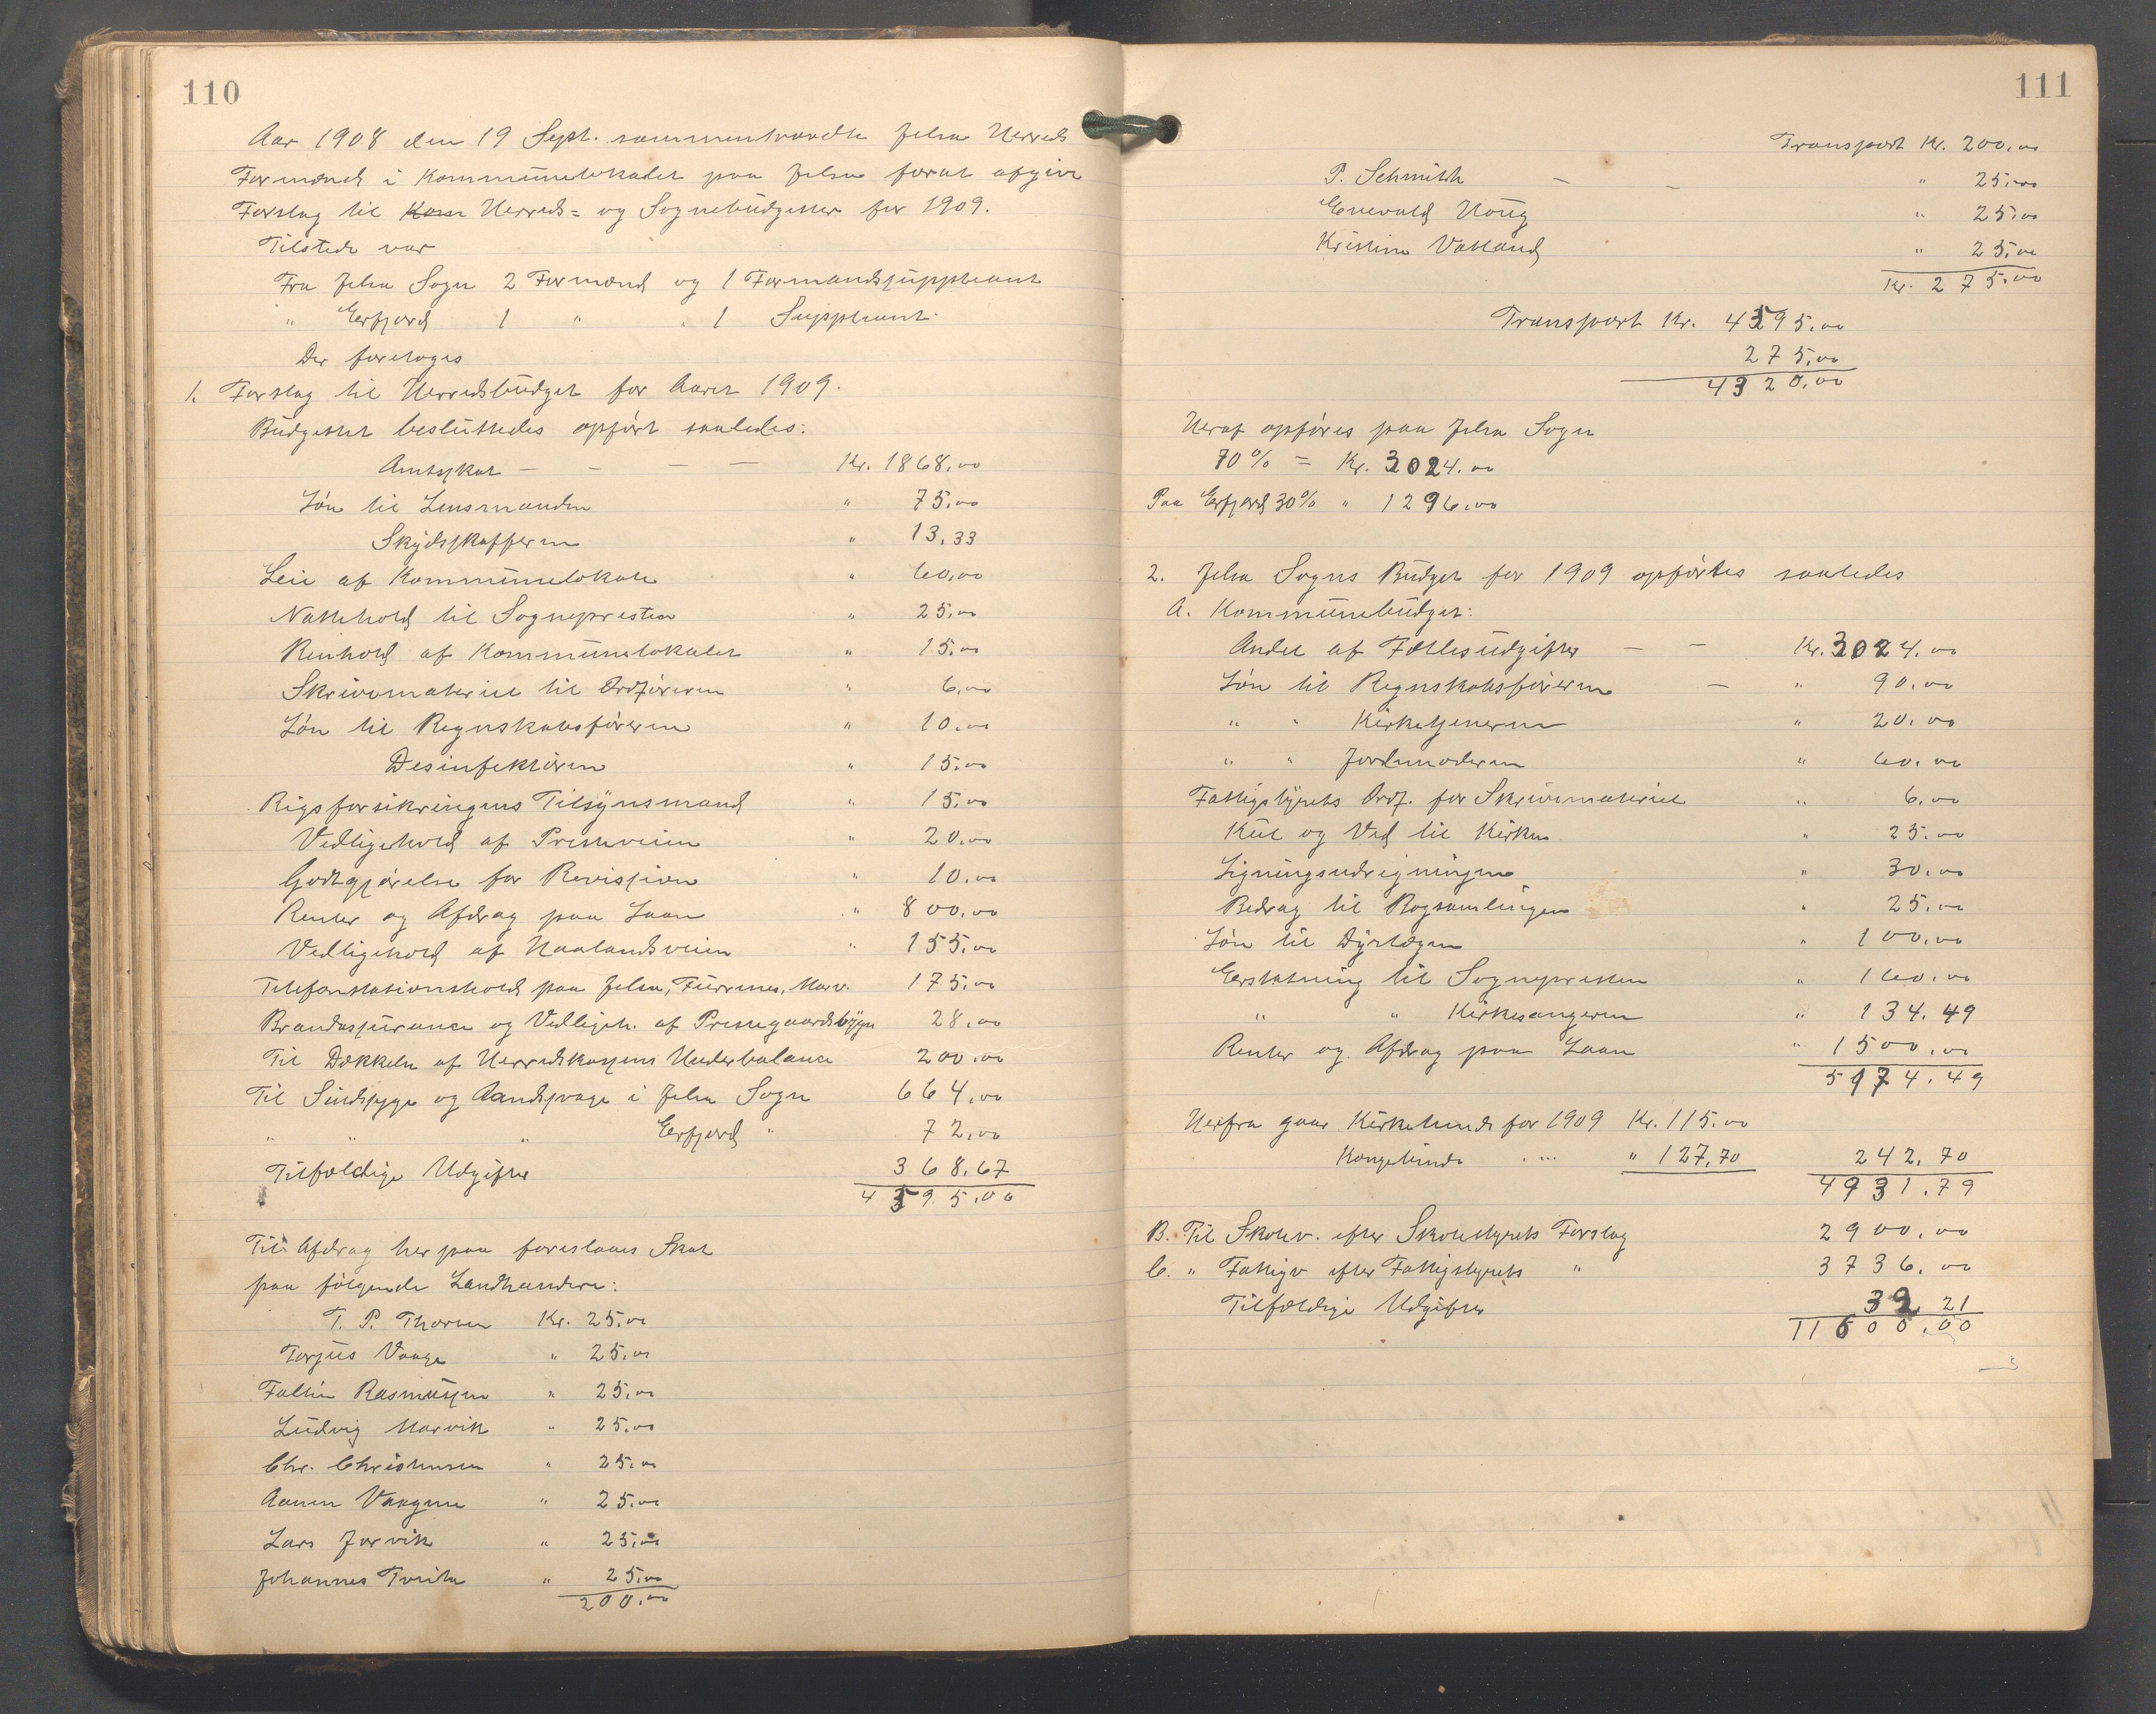 110
Aar 1908 den 19 Sept. sammentraadte Jelsa Herreds
Formænd i Kommunelokalet paa Jelsa forat afgive
Forslag til Herreds= og Sognebudgetter for 1909.
Tilstede var
Fra Jelsa Sogn 2 Formænd og 1 Formandssuppleant
" Erfjord 1 " 1 Suppleant.
Der foretoges
1. Forslag til Herredsbudget for Aaret 1909.
Budgettet besluttedes opført saaledes:
Amtsskat — — — — Kr. 1868.00
Løn til Lensmanden " 75.00
Skydsskafferen " 13.33
Leie af Kommunelokale " 60.00
Nattehold til Sognepresten " 25.00
Renhold af Kommunelokalet " 15.00
Skrivemateriel til Ordføreren " 6.00
Løn til Regnskabsføreren " 10.00
Desinfektøren " 15.00
Rigsforsikringens Tilsynsmand " 15.00
Vedligehold af Presteveien " 20.00
Godtgjørelse for Revisjion " 10.00
Renter og Afdrag paa Laan " 800.00
Vedligehold af Haalandsveien " 155.00
Telefonstationshold paa Jelsa, Furrenes, Marv. 175.00
Brandassurance og Vedligeh. af Prestegaardsbygn 28.00
Til Dækkelse af Herredskassens Underbalance 200.00
Til Sindssyge og Aandssvage i Jelsa Sogn 664.00
" " " Erfjord " 72.00
Tilfældige Udgifter 368.67
4595.00
Til Afdrag her paa foreslaaes Skat
paa følgende Landhandlere:
T. P. Thorsen Kr. 25.00
Torjus Vaage " 25.00
Faltin Rasmussen " 25.00
Ludvig Marvik " 25.00
Chr. Christensen " 25.00
Aanen Vaagene " 25.00
Lars Jørvik " 25.00
Johannes Tveita " 25.00
200.00
111
Transport Kr. 200.00
P. Schmidt — — " 25.00
Enevald Houg " 25.00
Kristine Vatland " 25.00
Kr. 275.00
Transport Kr. 4595.00
275.00
4320.00
Heraf opføres paa Jelsa Sogn
70% = Kr. 3024.00
Paa Erfjord 30% " 1296.00
2. Jelsa Sogns Budget for 1909 opførtes saaledes
A. Kommunebudget:
Andel af Fællesudgifter — — Kr. 3024.00
Løn til Regnskabsføreren — " 90.00
" " Kirketjeneren " 20.00
" " Jordmoderen " 60.00
Fattigstyrets Ordf. for Skrivemateriel " 6.00
Kul og Ved til Kirken " 25.00
Ligningsudregningen " 30.00
Bidrag til Bogsamlingen " 25.00
Løn til Dyrlægen " 100.00
Erstatning til Sognepresten " 160.00
" " Kirkesangeren " 134.49
Renter og Afdrag paa Laan " 1500.00
5174.49
Herfra gaar Kirketiende for 1909 Kr. 115.00
Kongetiende " " 127.70 242.70
4931.79
B. Til Skolev. efter Skolestyrets Forslag 2900.00
C. " Fattigv. efter Fattigstyrets " 3736.00
Tilfældige Udgifter 32.21
11600.00